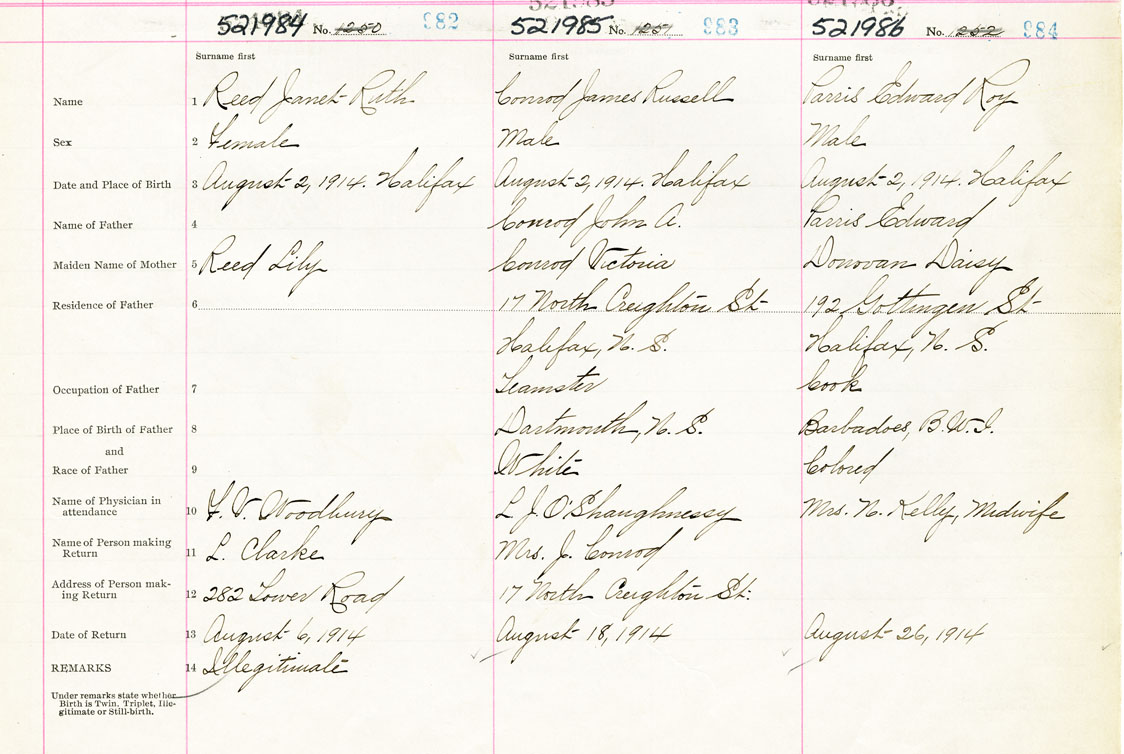 521984 No. 1250 982 521985 No. 1251 983 521986 No. 252 984
Surname first Surname first Surname first
Name 1 Reed Janet Ruth Conrod James Russell Parris Edward Roy
Sex 2 Female Male Male
Date and Place of Birth 3 August 2, 1914. Halifax August 2, 1914. Halifax August 2, 1914. Halifax
Name of Father 4 Conrod John A. Parris Edward
Maiden Name of Mother 5 Reed Lily Conrod Victoria Donovan Daisy
Residence of Father 6 17 North Creighton St 192 Gottingen St
Halifax, N. S. Halifax, N. S.
Occupation of Father 7 Teamster Cook
Place of Birth of Father 8 Dartmouth, N. S. Barbadoes, B. W. I.
and
Race of Father 9 White Colored
Name of Physician in
attendance 10 F. V. Woodbury L. J. O'Shaughnessy Mrs. N. Kelly, Midwife
Name of Person making
Return 11 L. Clarke Mrs. J. Conrod
Address of Person mak-
ing Return 12 282 Lower Road 17 North Creighton St.
Date of Return 13 August 6, 1914 August 18, 1914 August 26, 1914
REMARKS 14 Illegitimate
Under remarks state whether
Birth is Twin, Triplet, Ille-
gitimate or Still-birth.